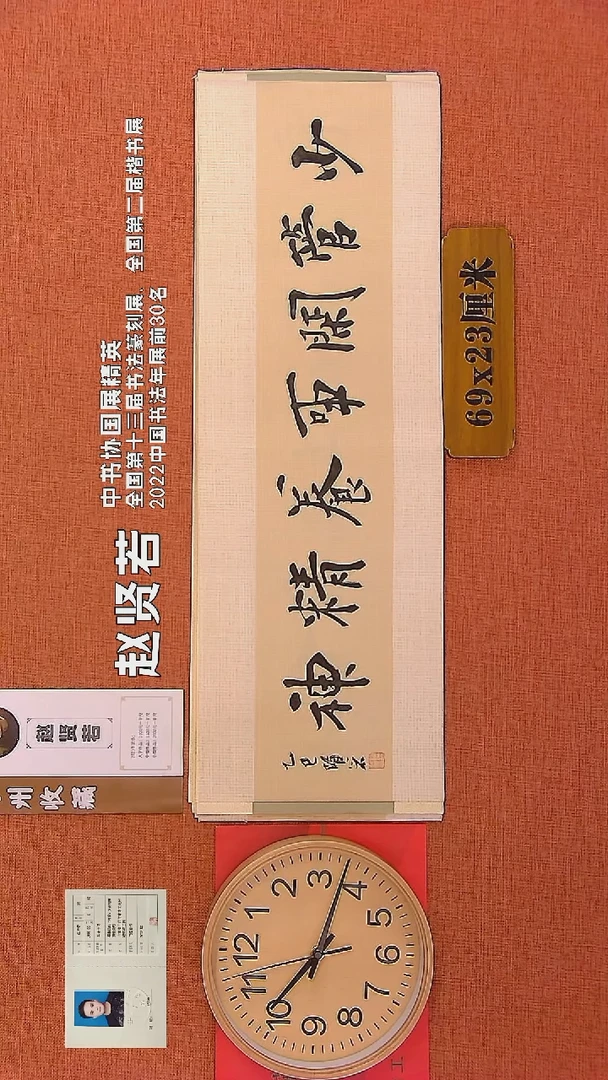 中书协国展精英
全国第十三届书法篆刻展、全国第二届楷书展
2022中国书法年展前30名
赵贤若
少管閑事養精神
乙巳
69x23厘米
赵贤若
州收藏
12
1
2
3
4
5
6
7
8
9
10
11